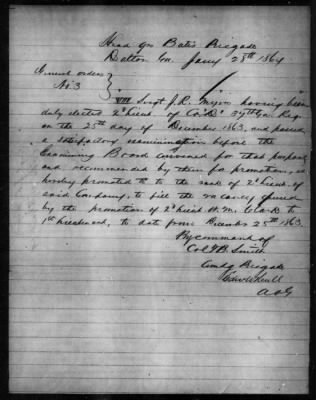 Head Qrs Bates Brigade
Dalton Ga. Jany 28th 1864
General Orders
No 3
VIII Sergt J. R. having been
duly elected 2d Lieut of Co "B" 37th Ga. Reg.
on the 25th day of December 1863, and passed
a satisfactory examination before the
Examining Board convened for that purpose
and recommended by them for promotion, is
hereby promoted to the rank of 2d Lieut. of
said Company, to fill the vacancy opened
by the promotion of 2d Lieut H. M. Clark to
1st Lieutenant, to date from December 25th 1863.
By command of
Col T B. Smith
Comdg Brigade
A A G